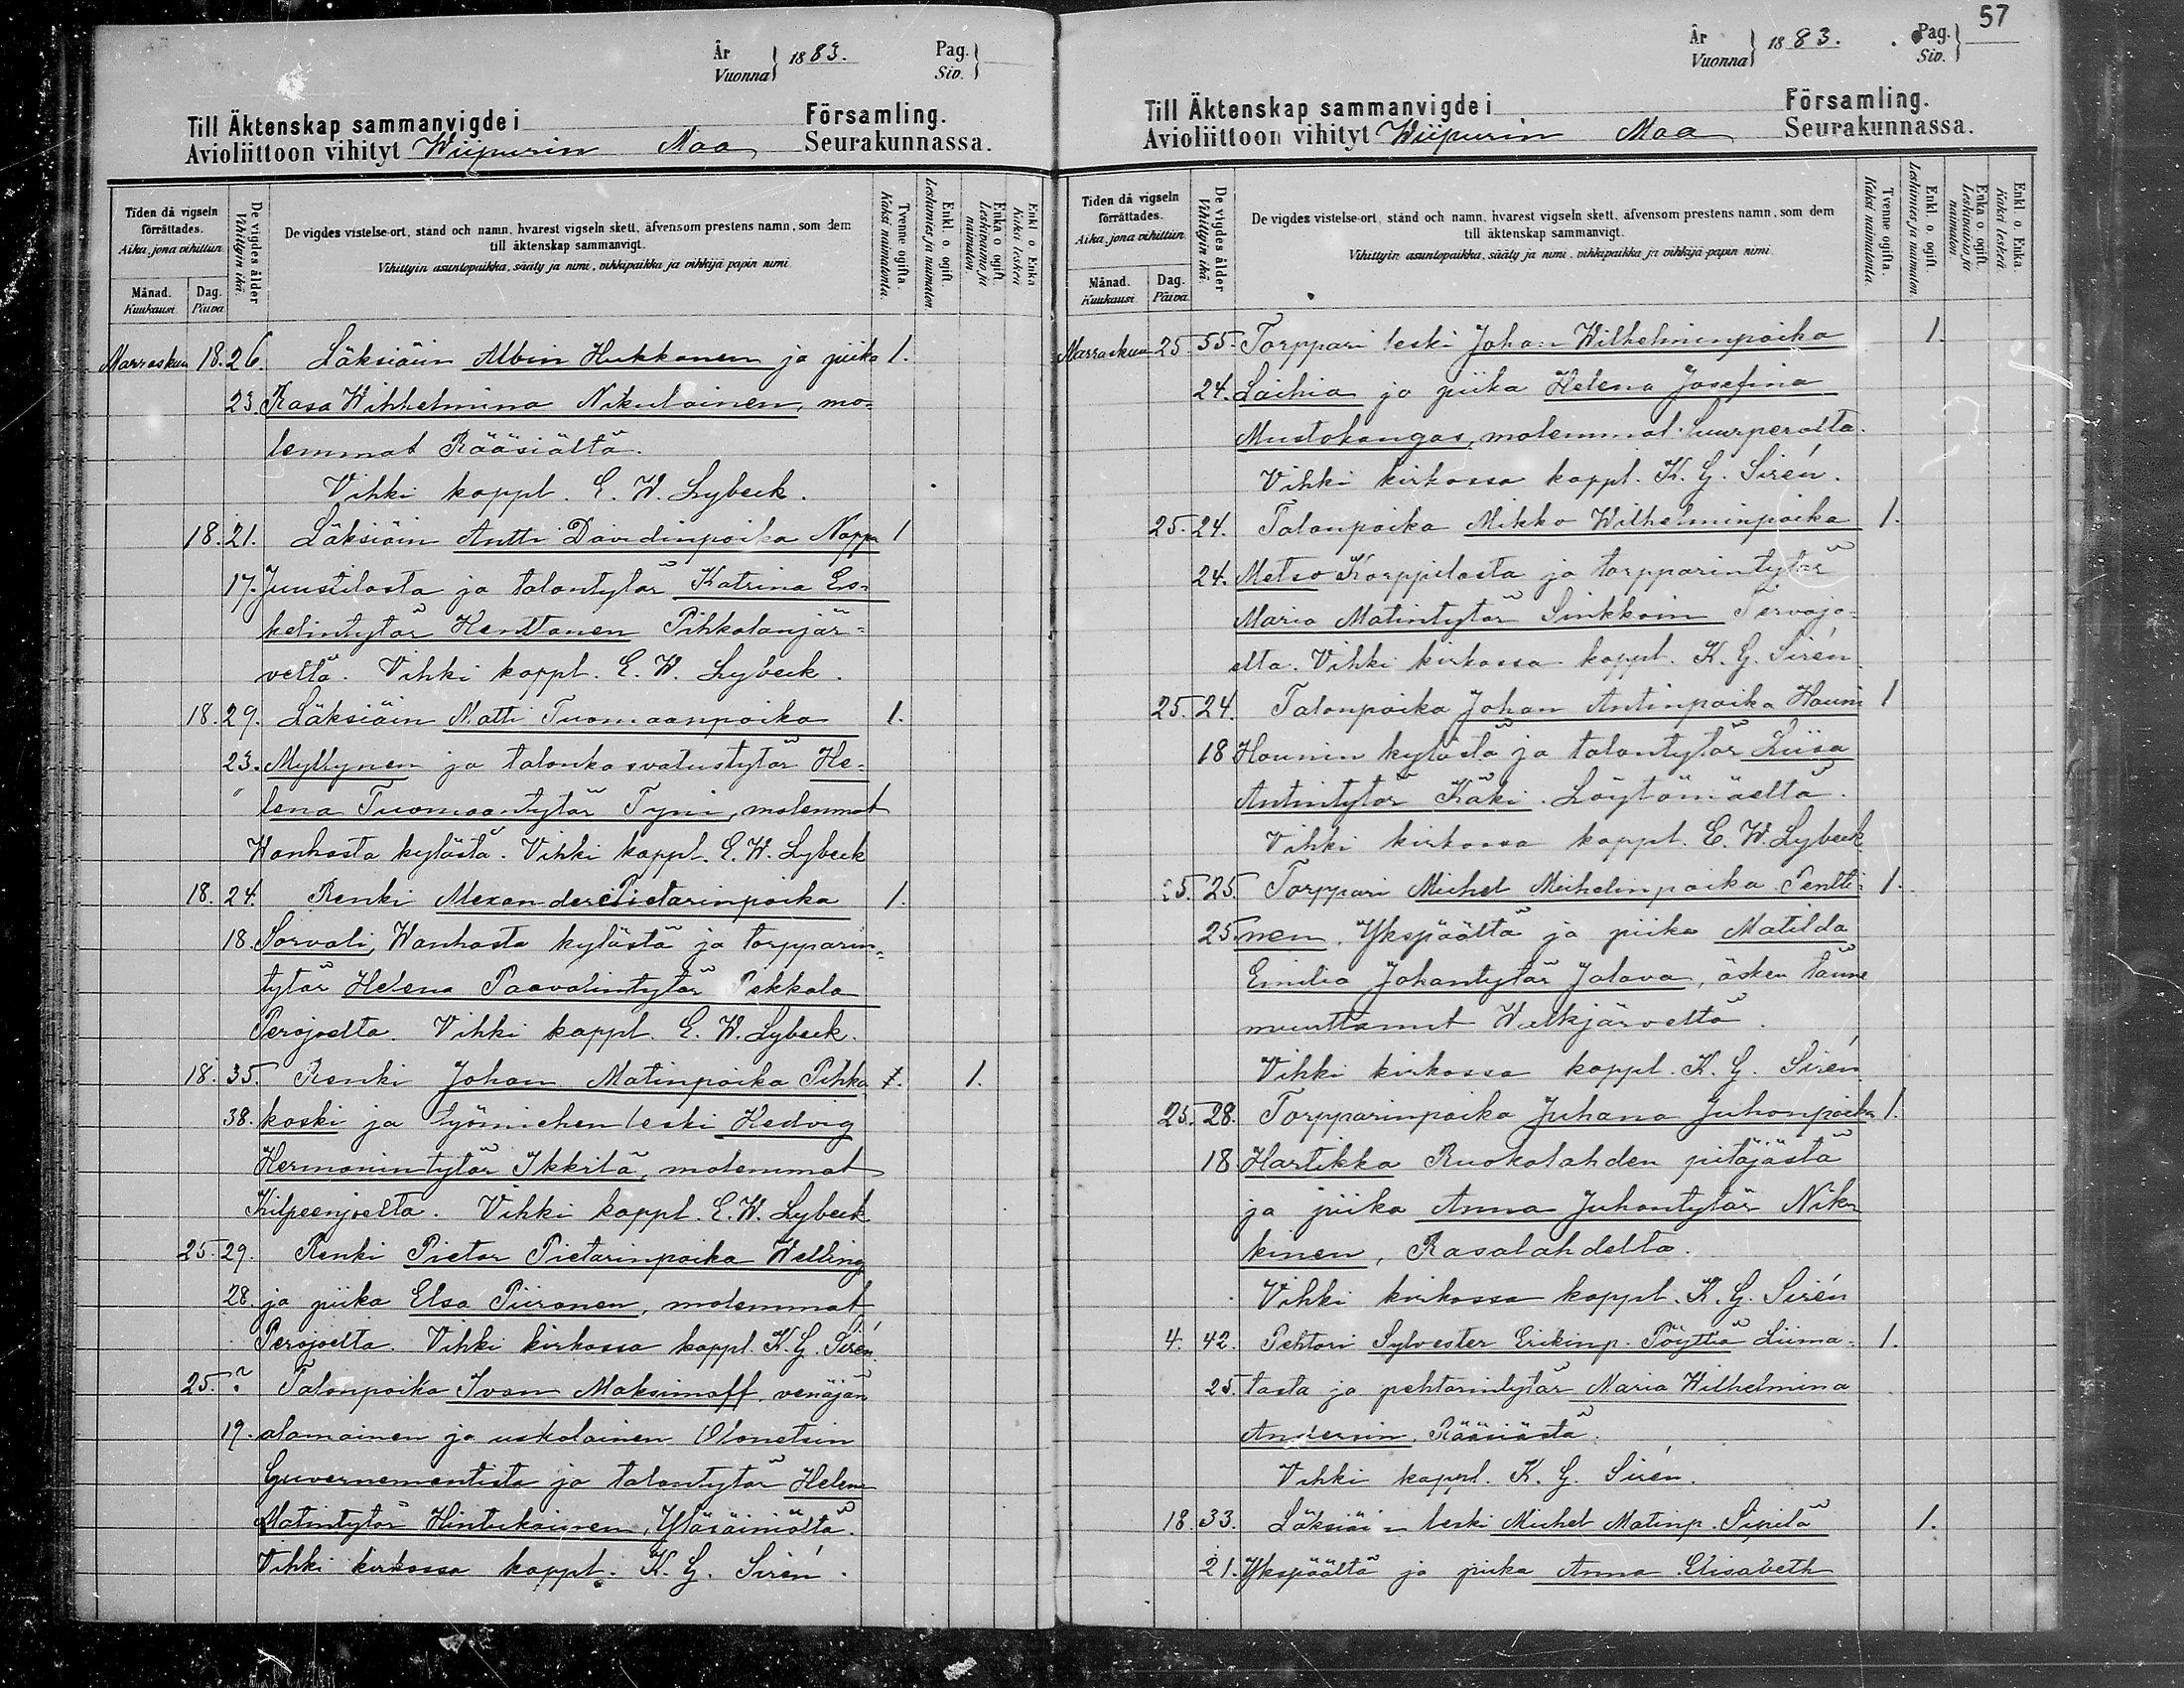 År Vuonna 1883. Pag. Siv.
Till Äktenskap sammanvigde i Församling.
Avioliittoon vihityt Wiipurin Maa Seurakunnassa.
Tiden då vigseln förrättades.
Aika, jona vihittiin
Månad. Kuukausi
Dag. Päivä
De vigdes ålder Vihittyin ikä.
De vigdes vistelse-ort, stånd och namn, hvarest vigseln skett, äfvensom prestens namn, som dem
till äktenskap sammanvigt.
Vihittyin asuntopaikka, sääty ja nimi, vihkipaikka ja vihkijä papin nimi
Tvenne ogifta. Kaksi naimatonta.
Enkl. o. ogift. Leskimies ja naimaton.
Enka o. ogift. Leskivaimo ja naimaton
Enkl o. Enka Kaksi leskeä
Marraskuu 18. 26. Läksiäin Albin Hukkanen ja piika 1.
23. Rasa Wihhelmina Nikulainen, mo=
lemmat Rääsiältä.
Vihki kappl. E. W. Lybeck.
18. 21. Läksiäin Antti Davidinpoika Nappa 1
17. Juustilasta ja talontytär Katrina Es=
kelintytär Henttonen Pihkalanjär=
veltä. Vihki kappl. E. W. Lybeck.
18. 29. Läksiäin Matti Tuomaanpoika 1.
23. Myllynen ja talonkasvatustytär He=
lena Tuomaantytär Tyni, molemmat
Wanhasta kylästä. Vihki kappl. E. W. Lybeck
18. 24. Renki Alexander Pietarinpoika 1.
18. Sorvali, Wanhasta kylästä ja torpparin=
tytär Helena Paavalintytär Pekkala
Perojoelta. Vihki kappl. E. W. Lybeck.
18. 35. Renki Johan Matinpoika Pihka 1. 1.
38. koski ja työmiehen leski Hedvig
Hermanintytär Ikkilä, molemmat
Kilpeenjoelta. Vihki kappl. E. W. Lybeck
25. 29. Renki Pietar Pietarinpoika Welling
28. ja piika Elsa Piironen, molemmat
Perojoelta. Vihki kirkossa kappl. K. G. Sirén.
25. ? Talonpoika Ivan Maksimoff, venäjän
19. alamainen ja uskolainen Olonetsin
Guvernementista ja talontytär Helena
Matintytär Hintukainen, Yläsäiniöltä.
Vihki kirkossa kappl. K. G. Sirén.
57
År Vuonna 1883. Pag. Siv.
Till Äktenskap sammanvigde i Församling.
Avioliittoon vihityt Wiipurin Maa Seurakunnassa.
Tiden då vigseln förrättades.
Aika, jona vihittiin
Månad. Kuukausi
Dag. Päivä
De vigdes ålder Vihittyin ikä.
De vigdes vistelse-ort, stånd och namn, hvarest vigseln skett, äfvensom prestens namn, som dem
till äktenskap sammanvigt.
Vihittyin asuntopaikka, sääty ja nimi, vihkipaikka ja vihkijä papin nimi
Tvenne ogifta. Kaksi naimatonta.
Enkl. o. ogift. Leskimies ja naimaton
Enka o. ogift. Leskivaimo ja naimaton.
Enkl. o. Enka. Kaksi leskeä.
Marraskuu 25. 55. Torppari leski Johan Wilhelminpoika 1.
24. Laihia ja piika Helena Josefina
Mustokangas, molemmat Suurperolta.
Vihki kirkossa kappl. K. G. Sirén.
25. 24. Talonpoika Mikko Wilhelminpoika 1.
24. Metso Korppilasta ja torpparintytär
Maria Matintytär Sinkkoin Tervajo=
elta. Vihki kirkossa kappl. K. G. Sirén
25. 24. Talonpoika Johan Antinpoika Houni 1
18 Hounin kylästä ja talontytär Liisa
Antintytär Käki. Löytömäeltä.
Vihki kirkossa kappl. E. W. Lybeck.
25. 25. Torppari Michel Michelinpoika Pentti= 1.
25. nen, Ykspäältä ja piika Matilda
Emilia Johantytär Jalava, äsken tänne
muuttanut Walkjärveltä.
Vihki kirkossa kappl. K. G. Sirén
25. 28. Torpparinpoika Juhana Juhonpoika 1.
18. Hartikka Ruokolahden pitäjästä
ja piika Anna Juhontytär Nik=
kinen, Rasalahdelta.
Vihki kirkossa kappl. K. G. Sirén
4. 42. Pehtori Sylvester Erikinp. Pöyttiä Liima= 1.
25. tasta ja pehtorintytär Maria Wilhelmina
Andersin, Rääsiästä.
Vihki kappl. K. G. Sirén.
18. 33. Läksiäin leski Michel Matinp. Sipilä 1.
21. Ykspäältä ja piika Anna Elisabeth